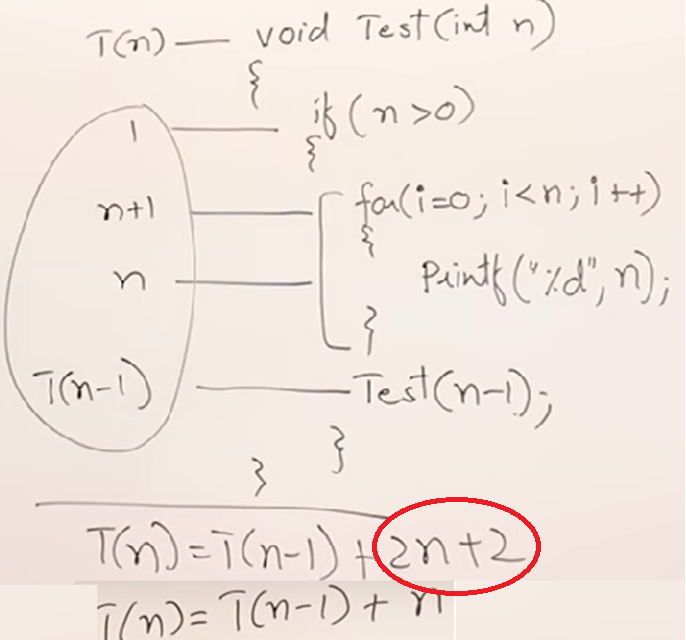 T(n) — void Test(int n)
{
1 — if(n>0)
{
n+1 — for(i=0; i<n; i++)
{
n — Printf("%d", n);
}
T(n-1) — Test(n-1);
}
}
T(n)=T(n-1)+2n+2
T(n)=T(n-1)+n